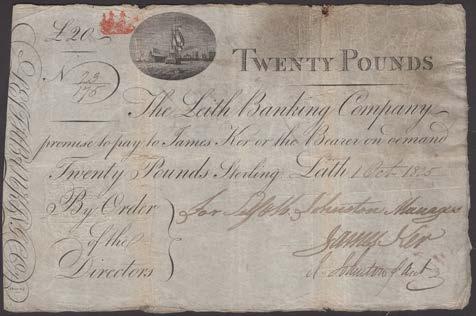 £20
TWENTY POUNDS
N 23/175
The Leith Banking Company
promise to pay to James Ker or the Bearer on demand
Twenty Pounds Sterling Leith 1 Oct 1825
By Order
of the
Directors
for Johnston Manager
James Ker
Johnston